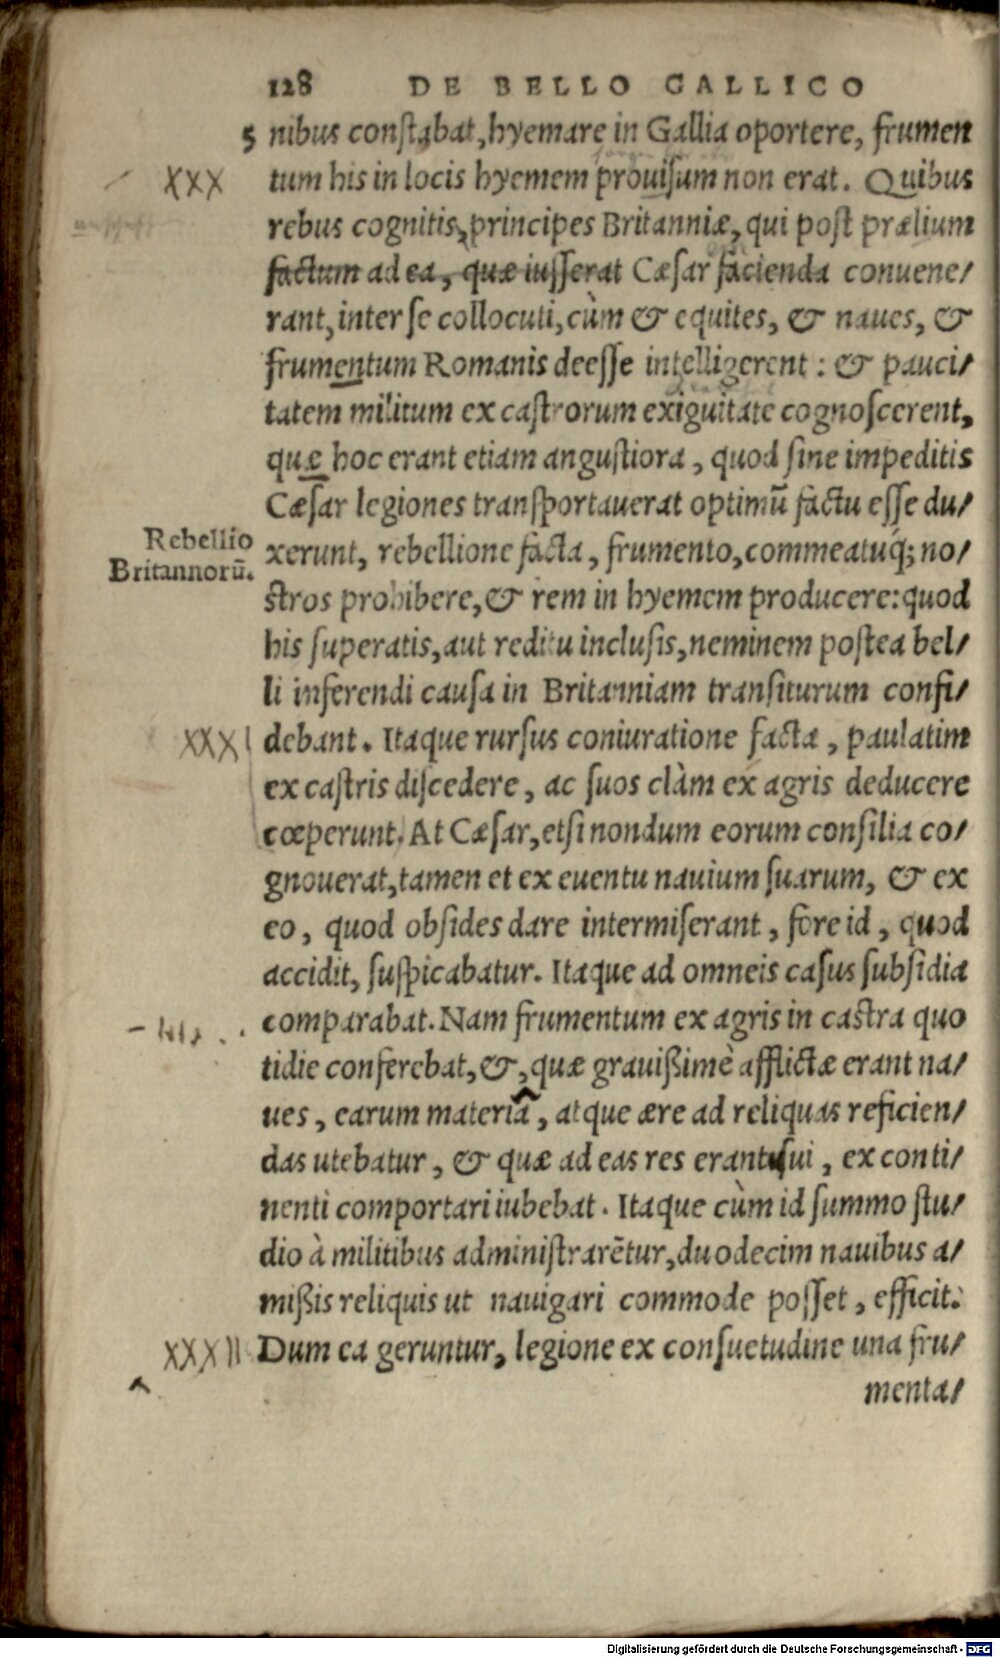 128 DE BELLO GALLICO
5 nibus constabat, hyemare in Gallia oportere, frumen
XXX tum his in locis hyemem prouisum non erat. Quibus
rebus cognitis, principes Britanniæ, qui post prælium
factum ad ea, quæ iusserat Cæsar facienda conuene/
rant, inter se collocuti, cùm & equites, & naues, &
frumentum Romanis deesse intelligerent: & pauci/
tatem militum ex castrorum exiguitate cognoscerent,
quæ hoc erant etiam angustiora, quod sine impeditis
Cæsar legiones transportauerat optimū factu esse du/
Rebellio
Britannorū.
xerunt, rebellione facta, frumento, commeatuq́; no/
stros prohibere, & rem in hyemem producere: quod
his superatis, aut reditu inclusis, neminem postea bel/
li inferendi causa in Britanniam transiturum confi/
XXXI debant. Itaque rursus coniuratione facta, paulatim
ex castris discedere, ac suos clàm ex agris deducere
cœperunt. At Cæsar, etsi nondum eorum consilia co/
gnouerat, tamen et ex euentu nauium suarum, & ex
eo, quod obsides dare intermiserant, fore id, quod
accidit, suspicabatur. Itaque ad omneis casus subsidia
comparabat. Nam frumentum ex agris in castra quo
tidie conferebat, &, quæ grauißimè afflictæ erant na/
ues, earum materia, atque ære ad reliquas reficien/
das utebatur, & quæ ad eas res erant usui, ex conti/
nenti comportari iubebat. Itaque cùm id summo stu/
dio à militibus administrarētur, duodecim nauibus a/
mißis reliquis ut nauigari commode posset, efficit.
XXXII Dum ea geruntur, legione ex consuetudine una fru/
menta/
Digitalisierung gefördert durch die Deutsche Forschungsgemeinschaft - DFG